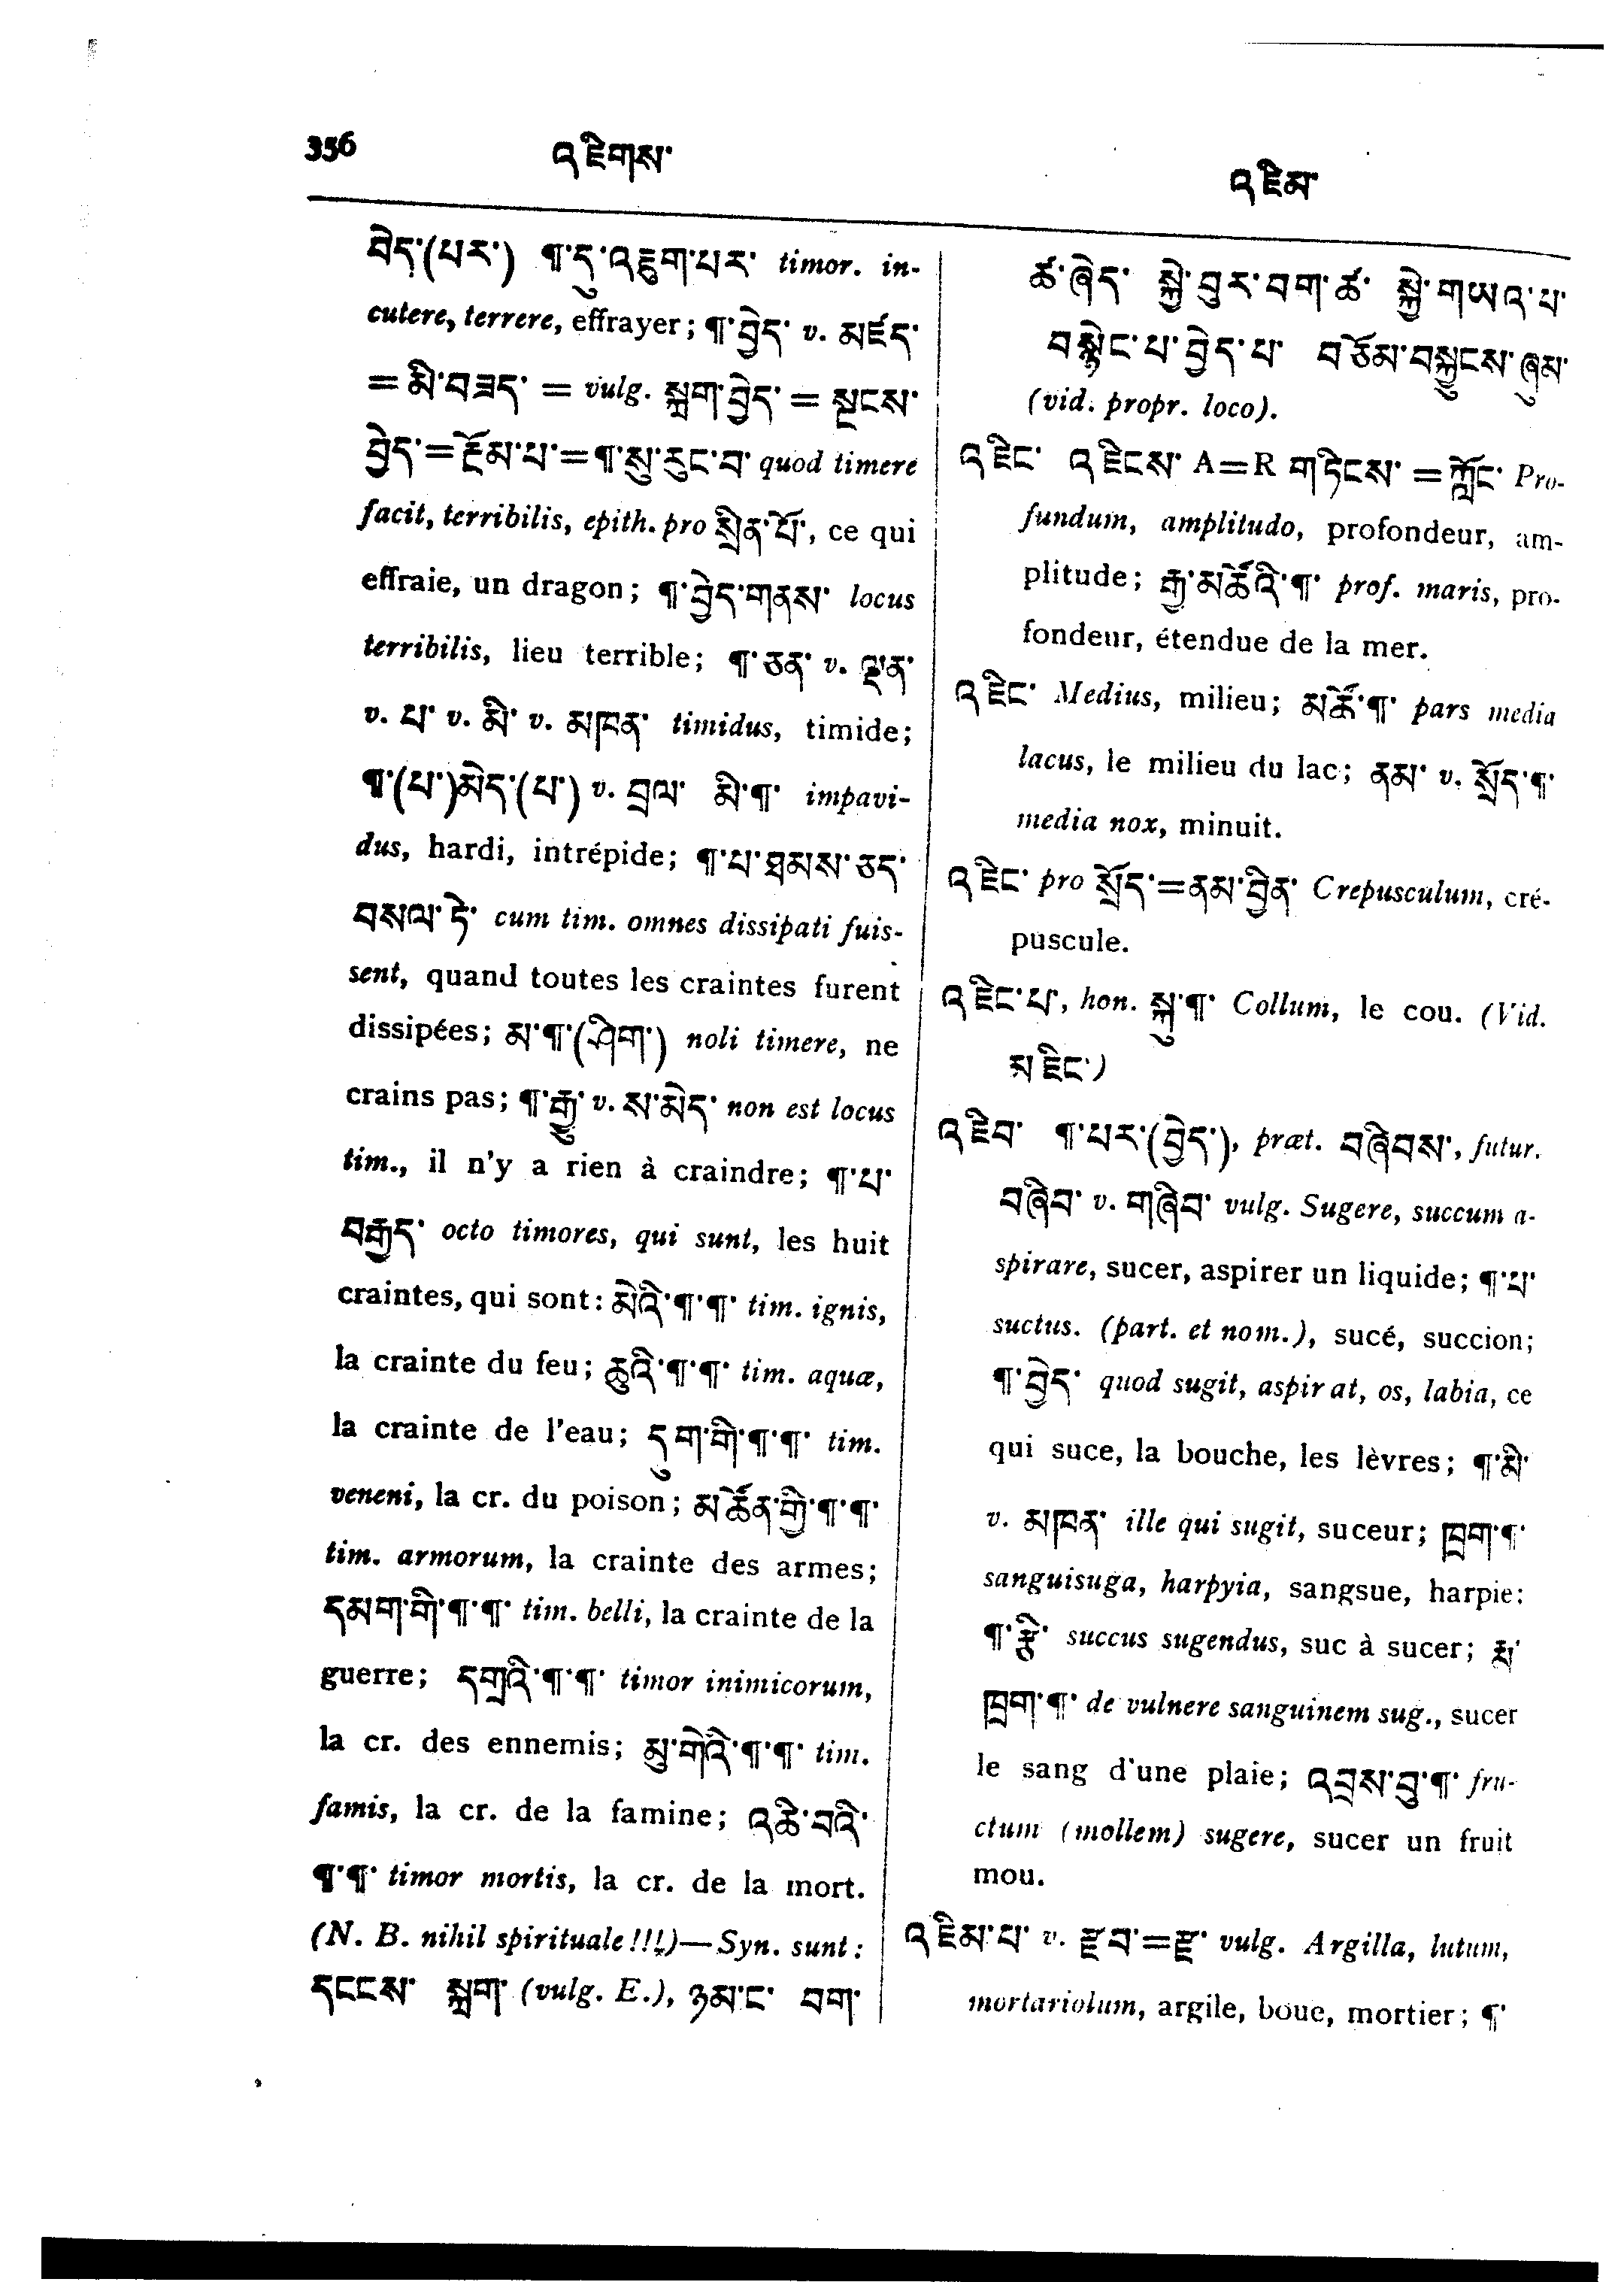 356 འཇིགས་ འཇིམ་
བེད་(པར་) ¶་དུ་འཇུག་པར་ timor. in-
cutere, terrere, effrayer; ¶་བྱེད་ v. མཛད་
= མི་བཟད་ = vulg. སྐྲག་བྱེད་ = སྔངས་
བྱེད་=རྔོམ་པ་=¶་སུ་རུང་བ་ quod timere
facit, terribilis, epith. pro སྲིན་པོ་, ce qui
effraie, un dragon; ¶་བྱེད་གནས་ locus
terribilis, lieu terrible; ¶་ཅན་ v. ལྡན་
v. པ་ v. མི་ v. མཁན་ timidus, timide;
¶་(པ་)མེད་(པ་) v. བྲལ་ མི་¶་ impavi-
dus, hardi, intrépide; ¶་པ་ཐམས་ཅད་
བསལ་ཏེ་ cum tim. omnes dissipati fuis-
sent, quand toutes les craintes furent
dissipées; མ་¶་(ཤིག་) noli timere, ne
crains pas; ¶་རྒྱུ་ v. ས་མེད་ non est locus
tim., il n'y a rien à craindre; ¶་པ་
བརྒྱད་ octo timores, qui sunt, les huit
craintes, qui sont: མེའི་¶་¶་ tim. ignis,
la crainte du feu; ཆུའི་¶་¶་ tim. aquæ,
la crainte de l'eau; དུག་གི་¶་¶་ tim.
veneni, la cr. du poison; མཚོན་གྱི་¶་¶་
tim. armorum, la crainte des armes;
དམག་གི་¶་¶་ tim. belli, la crainte de la
guerre; དགྲའི་¶་¶་ timor inimicorum,
la cr. des ennemis; མུ་གེའི་¶་¶་ tim.
famis, la cr. de la famine; འཆི་བའི་
¶་¶་ timor mortis, la cr. de la mort.
(N. B. nihil spirituale!!!)—Syn. sunt:
དངངས་ སྐྲག་ (vulg. E.), ཉམ་ང་ བག་
ཚ་ཞེད་ སྐྱི་བུར་བག་ཚ་ སྐྱི་གཡའ་པ་
བསྙེང་པ་བྱེད་པ་ བཙོམ་བསྐྱུངས་ཞུམ་
(vid. propr. loco).
འཇིང་ འཇིངས་ A=R གཏིངས་ = ཀློང་ Pro-
fundum, amplitudo, profondeur, am-
plitude; རྒྱ་མཚོའི་¶་ prof. maris, pro-
fondeur, étendue de la mer.
འཇིང་ Medius, milieu; མཚོ་¶་ pars media
lacus, le milieu du lac; ནམ་ v. སྲོད་¶་
media nox, minuit.
འཇིང་ pro སྲོད་=ནམ་བྱིན་ Crepusculum, cré-
puscule.
འཇིང་པ་, hon. སྐུ་¶་ Collum, le cou. (Vid.
མཇིང་)
འཇིབ་ ¶་པར་(བྱེད་), præt. བཞིབས་, futur.
བཞིབ་ v. གཞིབ་ vulg. Sugere, succum a-
spirare, sucer, aspirer un liquide; ¶་པ་
suctus. (part. et nom.), sucé, succion;
¶་བྱེད་ quod sugit, aspirat, os, labia, ce
qui suce, la bouche, les lèvres; ¶་མི་
v. མཁན་ ille qui sugit, suceur; ཁྲག་¶་
sanguisuga, harpyia, sangsue, harpie:
¶་རྩི་ succus sugendus, suc à sucer; རྨ་
ཁྲག་¶་ de vulnere sanguinem sug., sucer
le sang d'une plaie; འབྲས་བུ་¶་ fru-
ctum (mollem) sugere, sucer un fruit
mou.
འཇིམ་པ་ v. རྫབ་=རྫ་ vulg. Argilla, lutum,
mortariolum, argile, boue, mortier; ¶་